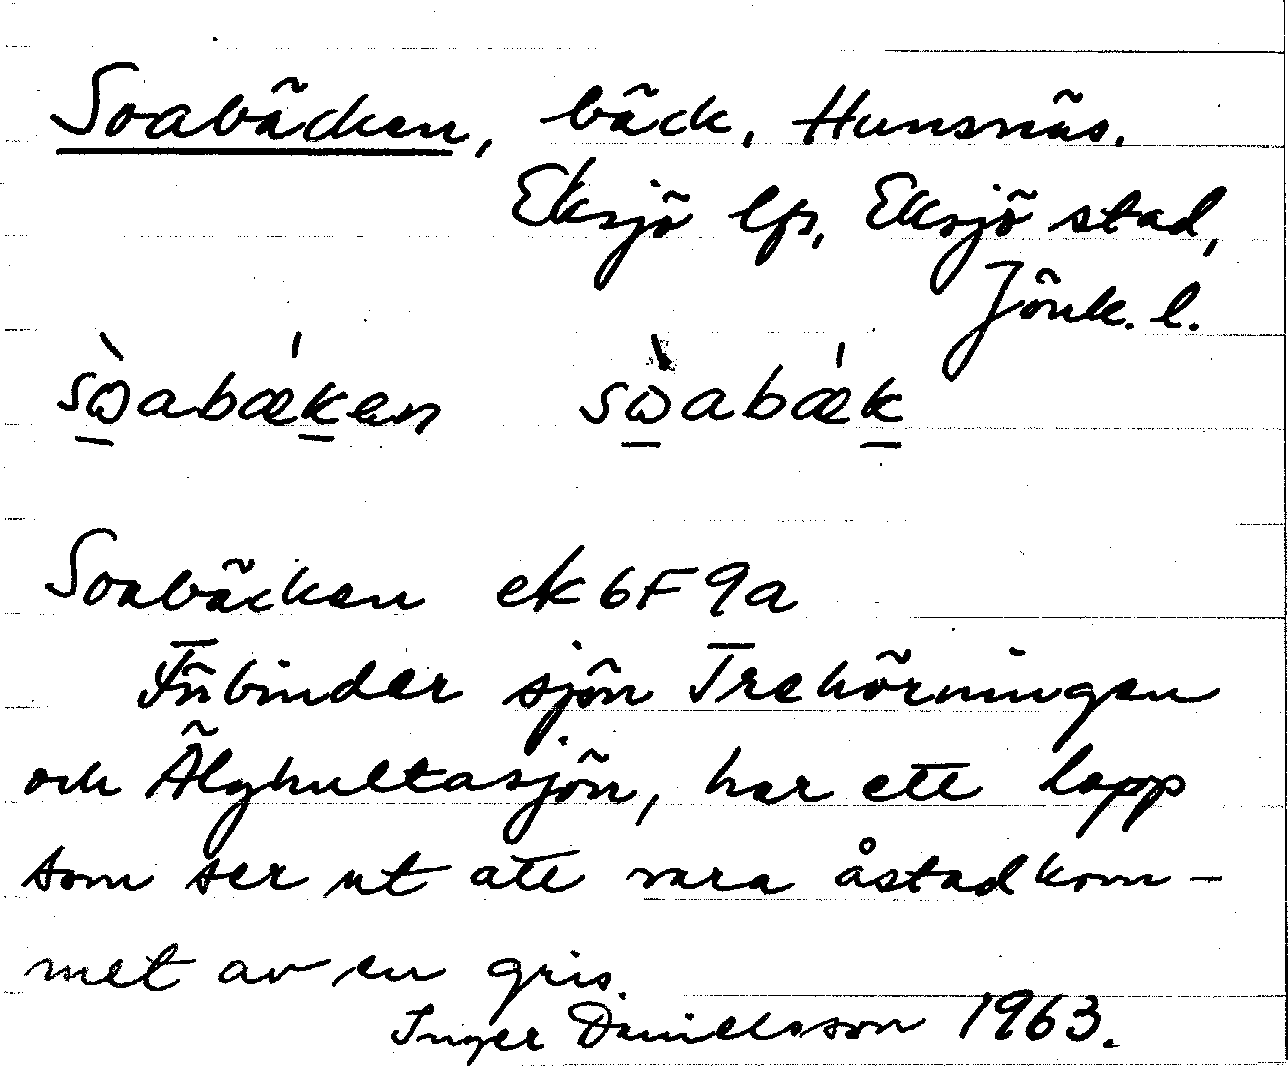 Soabäcken, bäck, Hunsnäs.
Eksjö lfs, Eksjö stad,
Jönk. l.
sὼabǽken sὼabǽk
Soabäcken ek 6F 9a
Förbinder sjön Trehörningen
och Älghultasjön, har ett lopp
som ser ut att vara åstadkom-
met av en gris.
Inger Danielsson 1963.